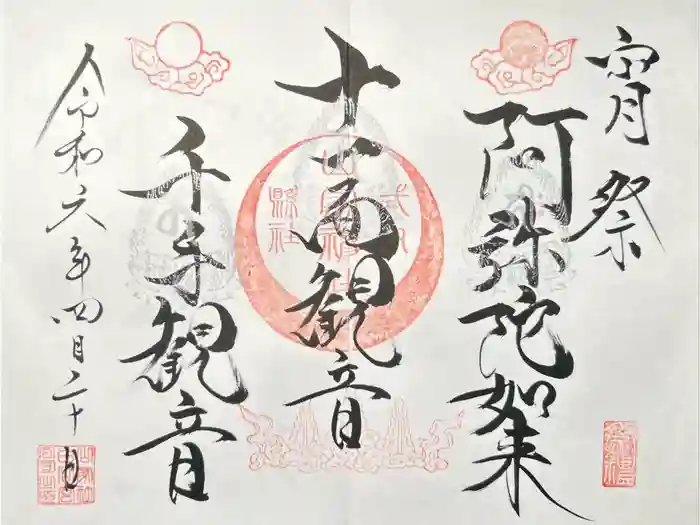 宵祭
阿弥陀如来
十一面観音
式内
縣社
千手観音
令和六年四月二十日